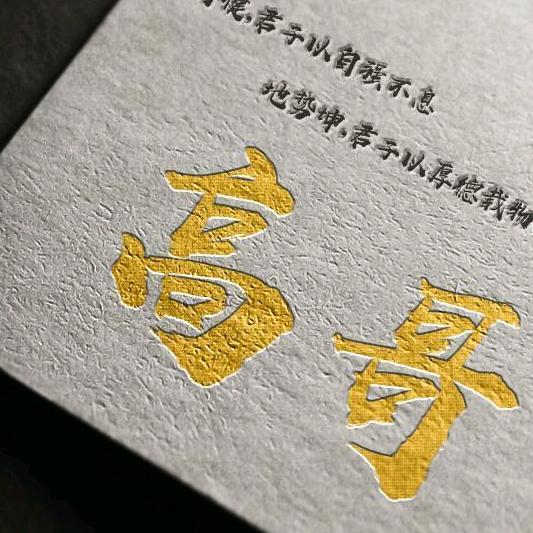 健,君子以自强不息
地势坤,君子以厚德载物
高哥